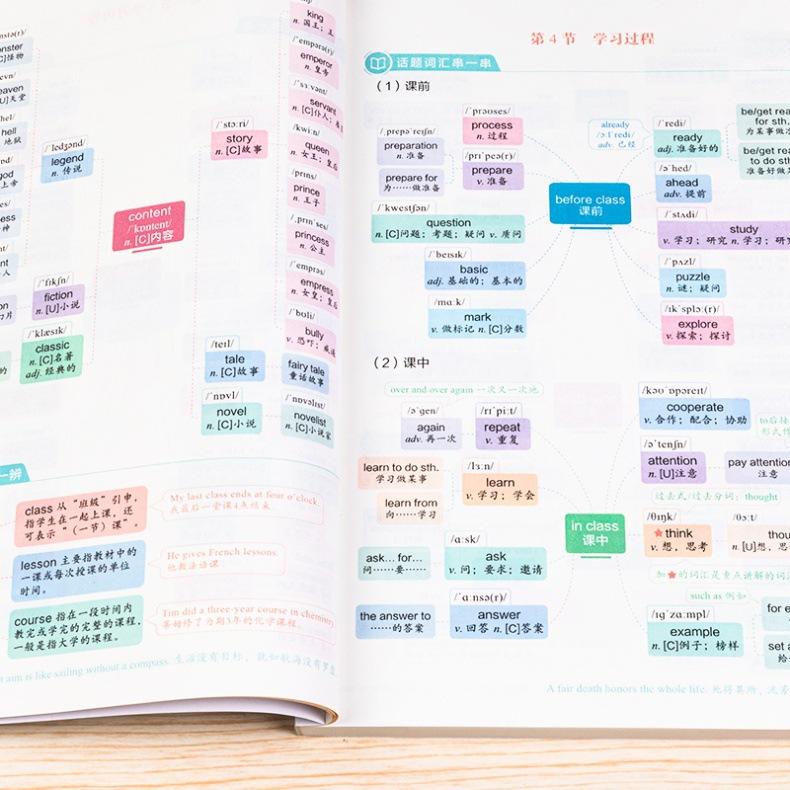 king
n. 国王；
/ˈempərə(r)/
emperor
n. 皇帝
/ˈsɜːvənt/
servant
n. [C]仆人；
/kwiːn/
queen
n. 女王；皇后
/prɪns/
prince
n. 王子
/ˌprɪnˈses/
princess
n. 公主
/ˈemprəs/
empress
n. 女皇；皇后
/ˈbʊli/
bully
v. 恐吓；
fairy tale
童话故事
/ˈnɒvəlɪst/
novelist
n. [C]小说家
/ˈstɔːri/
story
n. [C]故事
/ˈledʒənd/
legend
n. 传说
content
/ˈkɒntent/
n. [C]内容
/ˈfɪkʃn/
fiction
n. [U]小说
/ˈklæsɪk/
classic
n. [C]名著
adj. 经典的
/teɪl/
tale
n. [C]故事
/ˈnɒvl/
novel
n. [C]小说
[C]怪物
[U]天堂
hell
地狱
god
上帝
一辨
class 从“班级”引申，
指学生在一起上课，还
可表示“（一节）课”。
My last class ends at four o'clock.
我最后一堂课4点结束
lesson 主要指教材中的
一课或每次授课的单位
时间。
He gives French lessons.
他教法语课
course 指在一段时间内
教完或学完的完整的课程，
一般是指大学的课程。
Tim did a three-year course in chemistry.
蒂姆修了为期3年的化学课程。
aim is like sailing without a compass. 生活没有目标，就如航海没有罗盘
第 4 节 学习过程
话题词汇串一串
（1）课前
/ˌprepəˈreɪʃn/
preparation
n. 准备
prepare for
为……做准备
/ˈprəʊses/
process
n. 过程
/prɪˈpeə(r)/
prepare
v. 准备
/ˈkwestʃən/
question
n. [C]问题；考题；疑问 v. 质问
/ˈbeɪsɪk/
basic
adj. 基础的；基本的
/mɑːk/
mark
v. 做标记 n. [C]分数
before class
课前
already
/ɔːlˈredi/
adv. 已经
/ˈredi/
ready
adj. 准备好的
be/get ready
for sth.
为某事做准
be/get ready
to do sth.
准备好做
/əˈhed/
ahead
adv. 提前
/ˈstʌdi/
study
v. 学习；研究 n. 学习；研究
/ˈpʌzl/
puzzle
n. 谜；疑问
/ɪkˈsplɔː(r)/
explore
v. 探索；探讨
（2）课中
over and over again 一次又一次地
/əˈɡen/
again
adv. 再一次
/rɪˈpiːt/
repeat
v. 重复
learn to do sth.
学习做某事
learn from
向……学习
/lɜːn/
learn
v. 学习；学会
ask... for...
问……要……
/ɑːsk/
ask
v. 问；要求；邀请
the answer to
……的答案
/ˈɑːnsə(r)/
answer
v. 回答 n. [C]答案
in class
课中
/kəʊˈɒpəreɪt/
cooperate
v. 合作；配合；协助
to后接
形式作
/əˈtenʃn/
attention
n. [U]注意
pay attention
注意
过去式/过去分词：thought
/θɪŋk/
★think
v. 想，思考
/θɔːt/
n. [U]想，思
加★的词汇是重点讲解的词汇
such as 例如
/ɪɡˈzɑːmpl/
example
n. [C]例子；榜样
for
set a
给
A fair death honors the whole life. 死得其所，流芳